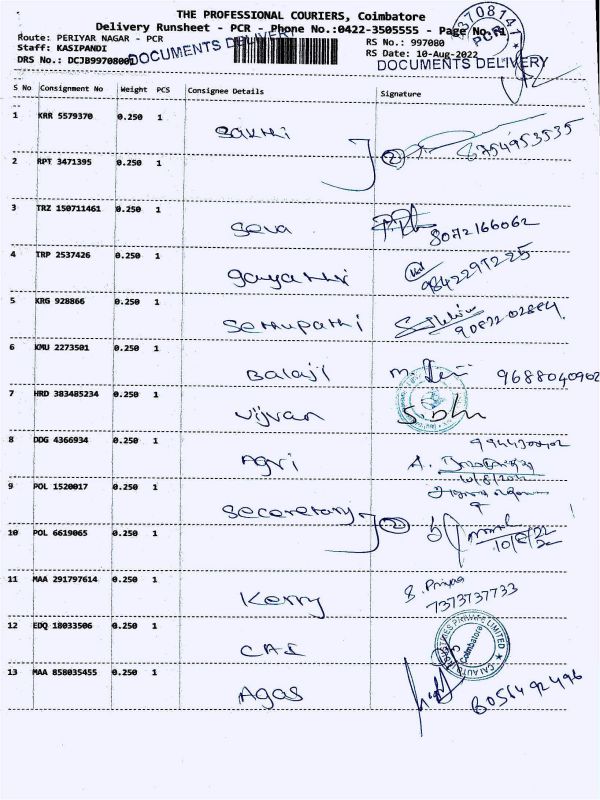 THE PROFESSIONAL COURIERS, Coimbatore
Delivery Runsheet - PCR - Phone No.:0422-3505555 - Page No.:1
Route: PERIYAR NAGAR - PCR
RS No.: 997080
Staff: KASIPANDI
RS Date: 10-Aug-2022
DRS No.: DCJB99708001
DOCUMENTS DELIVERY
DOCUMENTS DELIVERY
PCR
S No Consignment No Weight PCS Consignee Details Signature
1 KRR 5579370 0.250 1 Sakthi 8754953535
2 RPT 3471395 0.250 1
3 TRZ 150711461 0.250 1 Seva 8072166062
4 TRP 2537426 0.250 1 gayathri
5 KRG 928866 0.250 1 Sethupathi
6 KMU 2273501 0.250 1 Balaji 9688040902
7 HRD 383485234 0.250 1 Vijvan
8 DDG 4366934 0.250 1 Agri
10/8/2022
9 POL 1520017 0.250 1 Seceretary
10 POL 6619065 0.250 1
10/8/22
11 MAA 291797614 0.250 1 Kerry S. Priya
7373737733
12 EDQ 18033506 0.250 1 CAI
Coimbatore
13 MAA 858035455 0.250 1 Agas